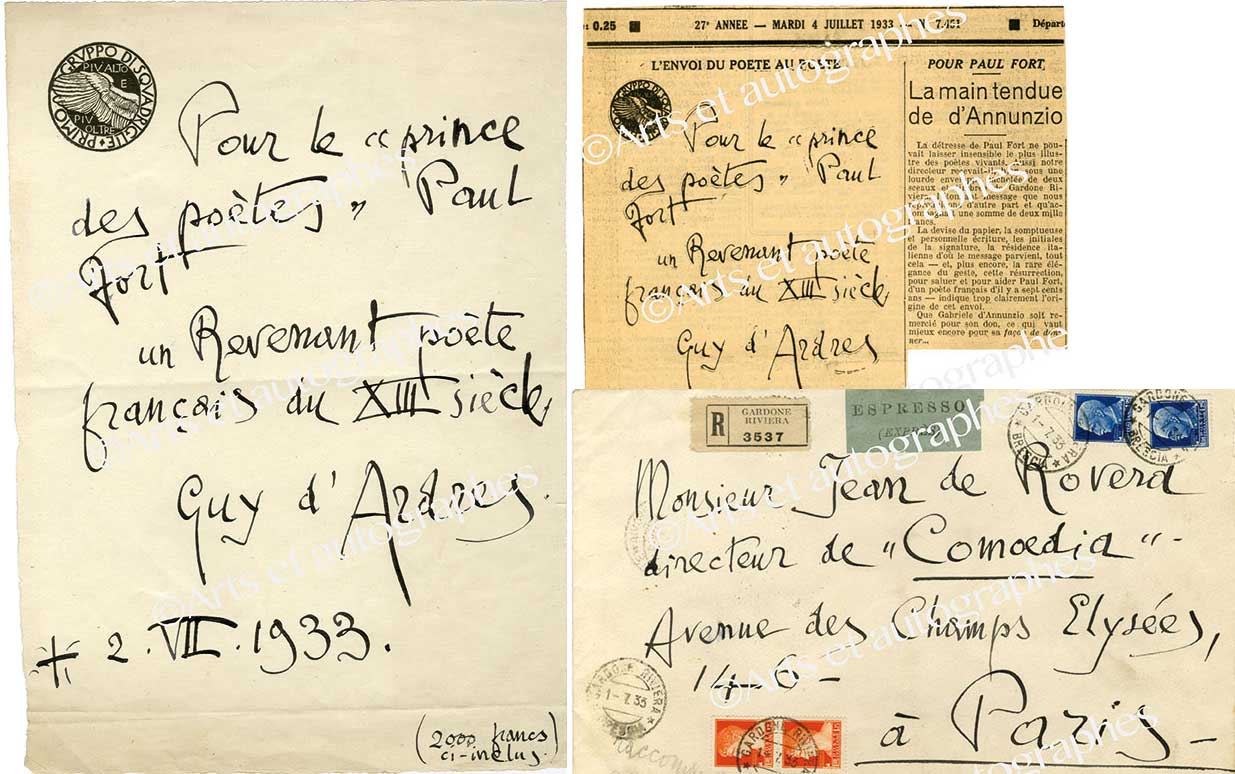 PRIMO GRVPPO DI SQVADRIGLIE
PIV ALTO
E
PIV
OLTRE
Pour le « prince
des poètes » Paul
Fort
un Revenant poète
français du XIII siècle
Guy d'Ardres.
2.VII.1933.
(2000 francs
ci-inclus.)
0.25 ■ 27e ANNEE — MARDI 4 JUILLET 1933 — N 7.451 ■ Départ
L'ENVOI DU POETE AU POETE
PRIMO GRVPPO DI SQVADRIGLIE
Pour le « prince
des poètes » Paul
Fort
un Revenant poète
français du XIII siècle
Guy d'Ardres
POUR PAUL FORT
La main tendue
de d'Annunzio
La détresse de Paul Fort ne pou-
vait laisser insensible le plus illus-
tre des poètes vivants. Aussi notre
directeur recevait-il
lourde enveloppe cachetée de deux
sceaux Gardone Ri-
viera message que nous
reproduisons d'autre part et qu'ac-
compagnait une somme de deux mille
francs.
La devise du papier, la somptueuse
et personnelle écriture, les initiales
de la signature, la résidence ita-
lienne d'où le message parvient, tout
cela — et, plus encore, la rare élé-
gance du geste, cette résurrection,
pour saluer et pour aider Paul Fort,
d'un poète français d'il y a sept cents
ans — indique trop clairement l'ori-
gine de cet envoi.
Que Gabriele d'Annunzio soit re-
mercié pour son don, ce qui vaut
mieux encore pour sa façon de don-
ner...
R GARDONE
RIVIERA
3537
ESPRESSO
(EXPRÈS)
GARDONE RIVIERA
1-7.33
BRESCIA
GARDONE
BRESCIA
Monsieur Jean de Rovera
directeur de « Comœdia » -
Avenue des Champs Elysées,
14-6-
à Paris -
GARDONE RIVIERA
1-7.33
BRESCIA
GARDONE RIVIERA
©Arts et autographes